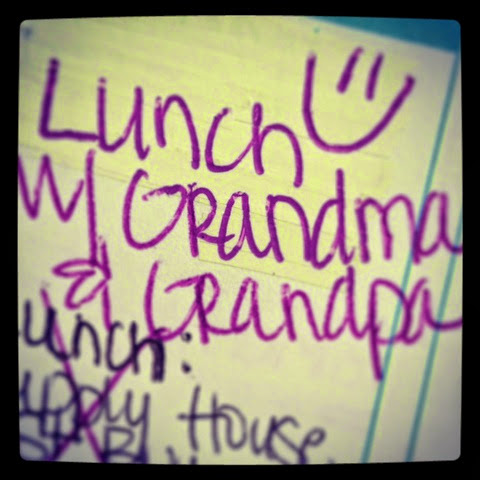 Lunch
W/ Grandma
& Grandpa
unch:
upply House